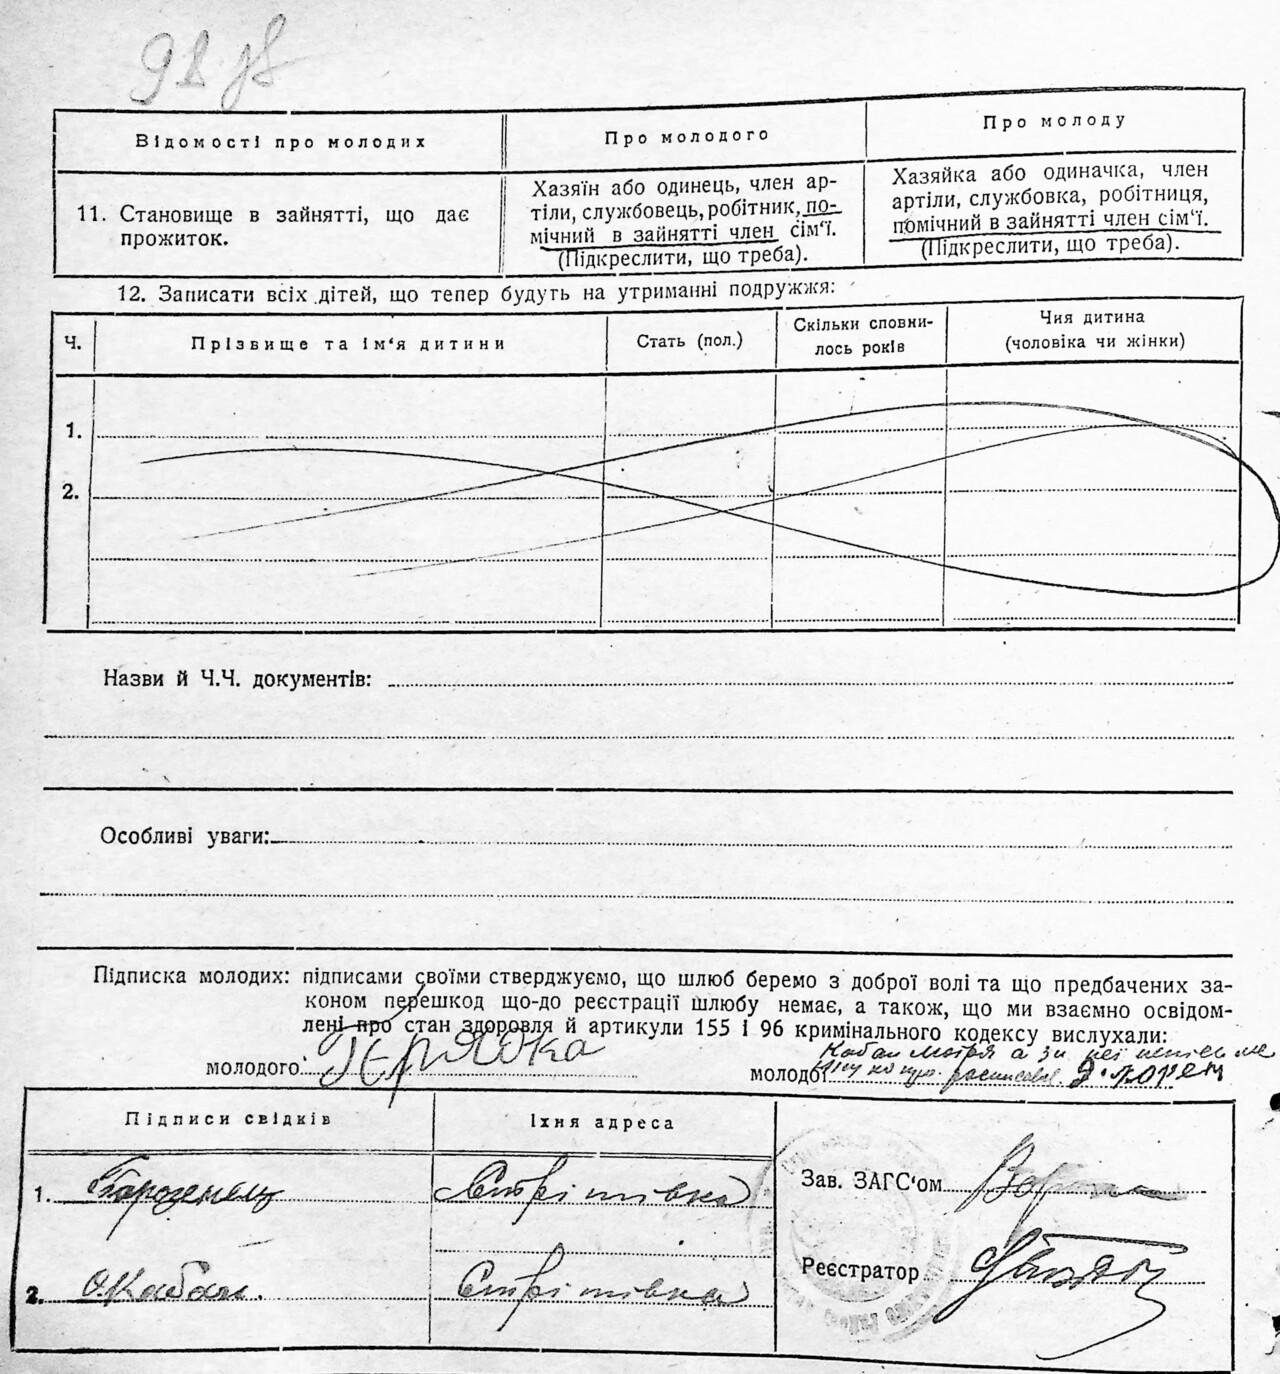 Відомості про молодих
Про молодого
Про молоду
11. Становище в зайнятті, що дає
прожиток.
Хазяїн або одинець, член ар-
тіли, службовець, робітник, по-
мічний в зайнятті член сім'ї.
(Підкреслити, що треба).
Хазяйка або одиначка, член
артіли, службовка, робітниця,
помічний в зайнятті член сім'ї.
(Підкреслити, що треба).
12. Записати всіх дітей, що тепер будуть на утриманні подружжя:
Ч.
Прізвище та ім'я дитини
Стать (пол.)
Скільки сповни-
лось років
Чия дитина
(чоловіка чи жінки)
1.
2.
Назви й Ч.Ч. документів:
Особливі уваги:
Підписка молодих: підписами своїми стверджуємо, що шлюб беремо з доброї волі та що предбачених за-
коном перешкод що-до реєстрації шлюбу немає, а також, що ми взаємно освідом-
лені про стан здоровля й артикули 155 і 96 кримінального кодексу вислухали:
молодого
молодої
Підписи свідків
Їхня адреса
1. Стрітівка
Зав. ЗАГС'ом
2. О. Кабан. Стрітівка
Реєстратор